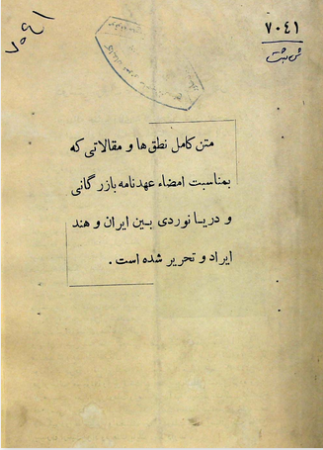 ۷۰۴۱
۷۰۴۱
ش ثبت
متن کامل نطق ها و مقالاتی که
بمناسبت امضاء عهدنامه بازرگانی
و دریا نوردی بین ایران و هند
ایراد و تحریر شده است .